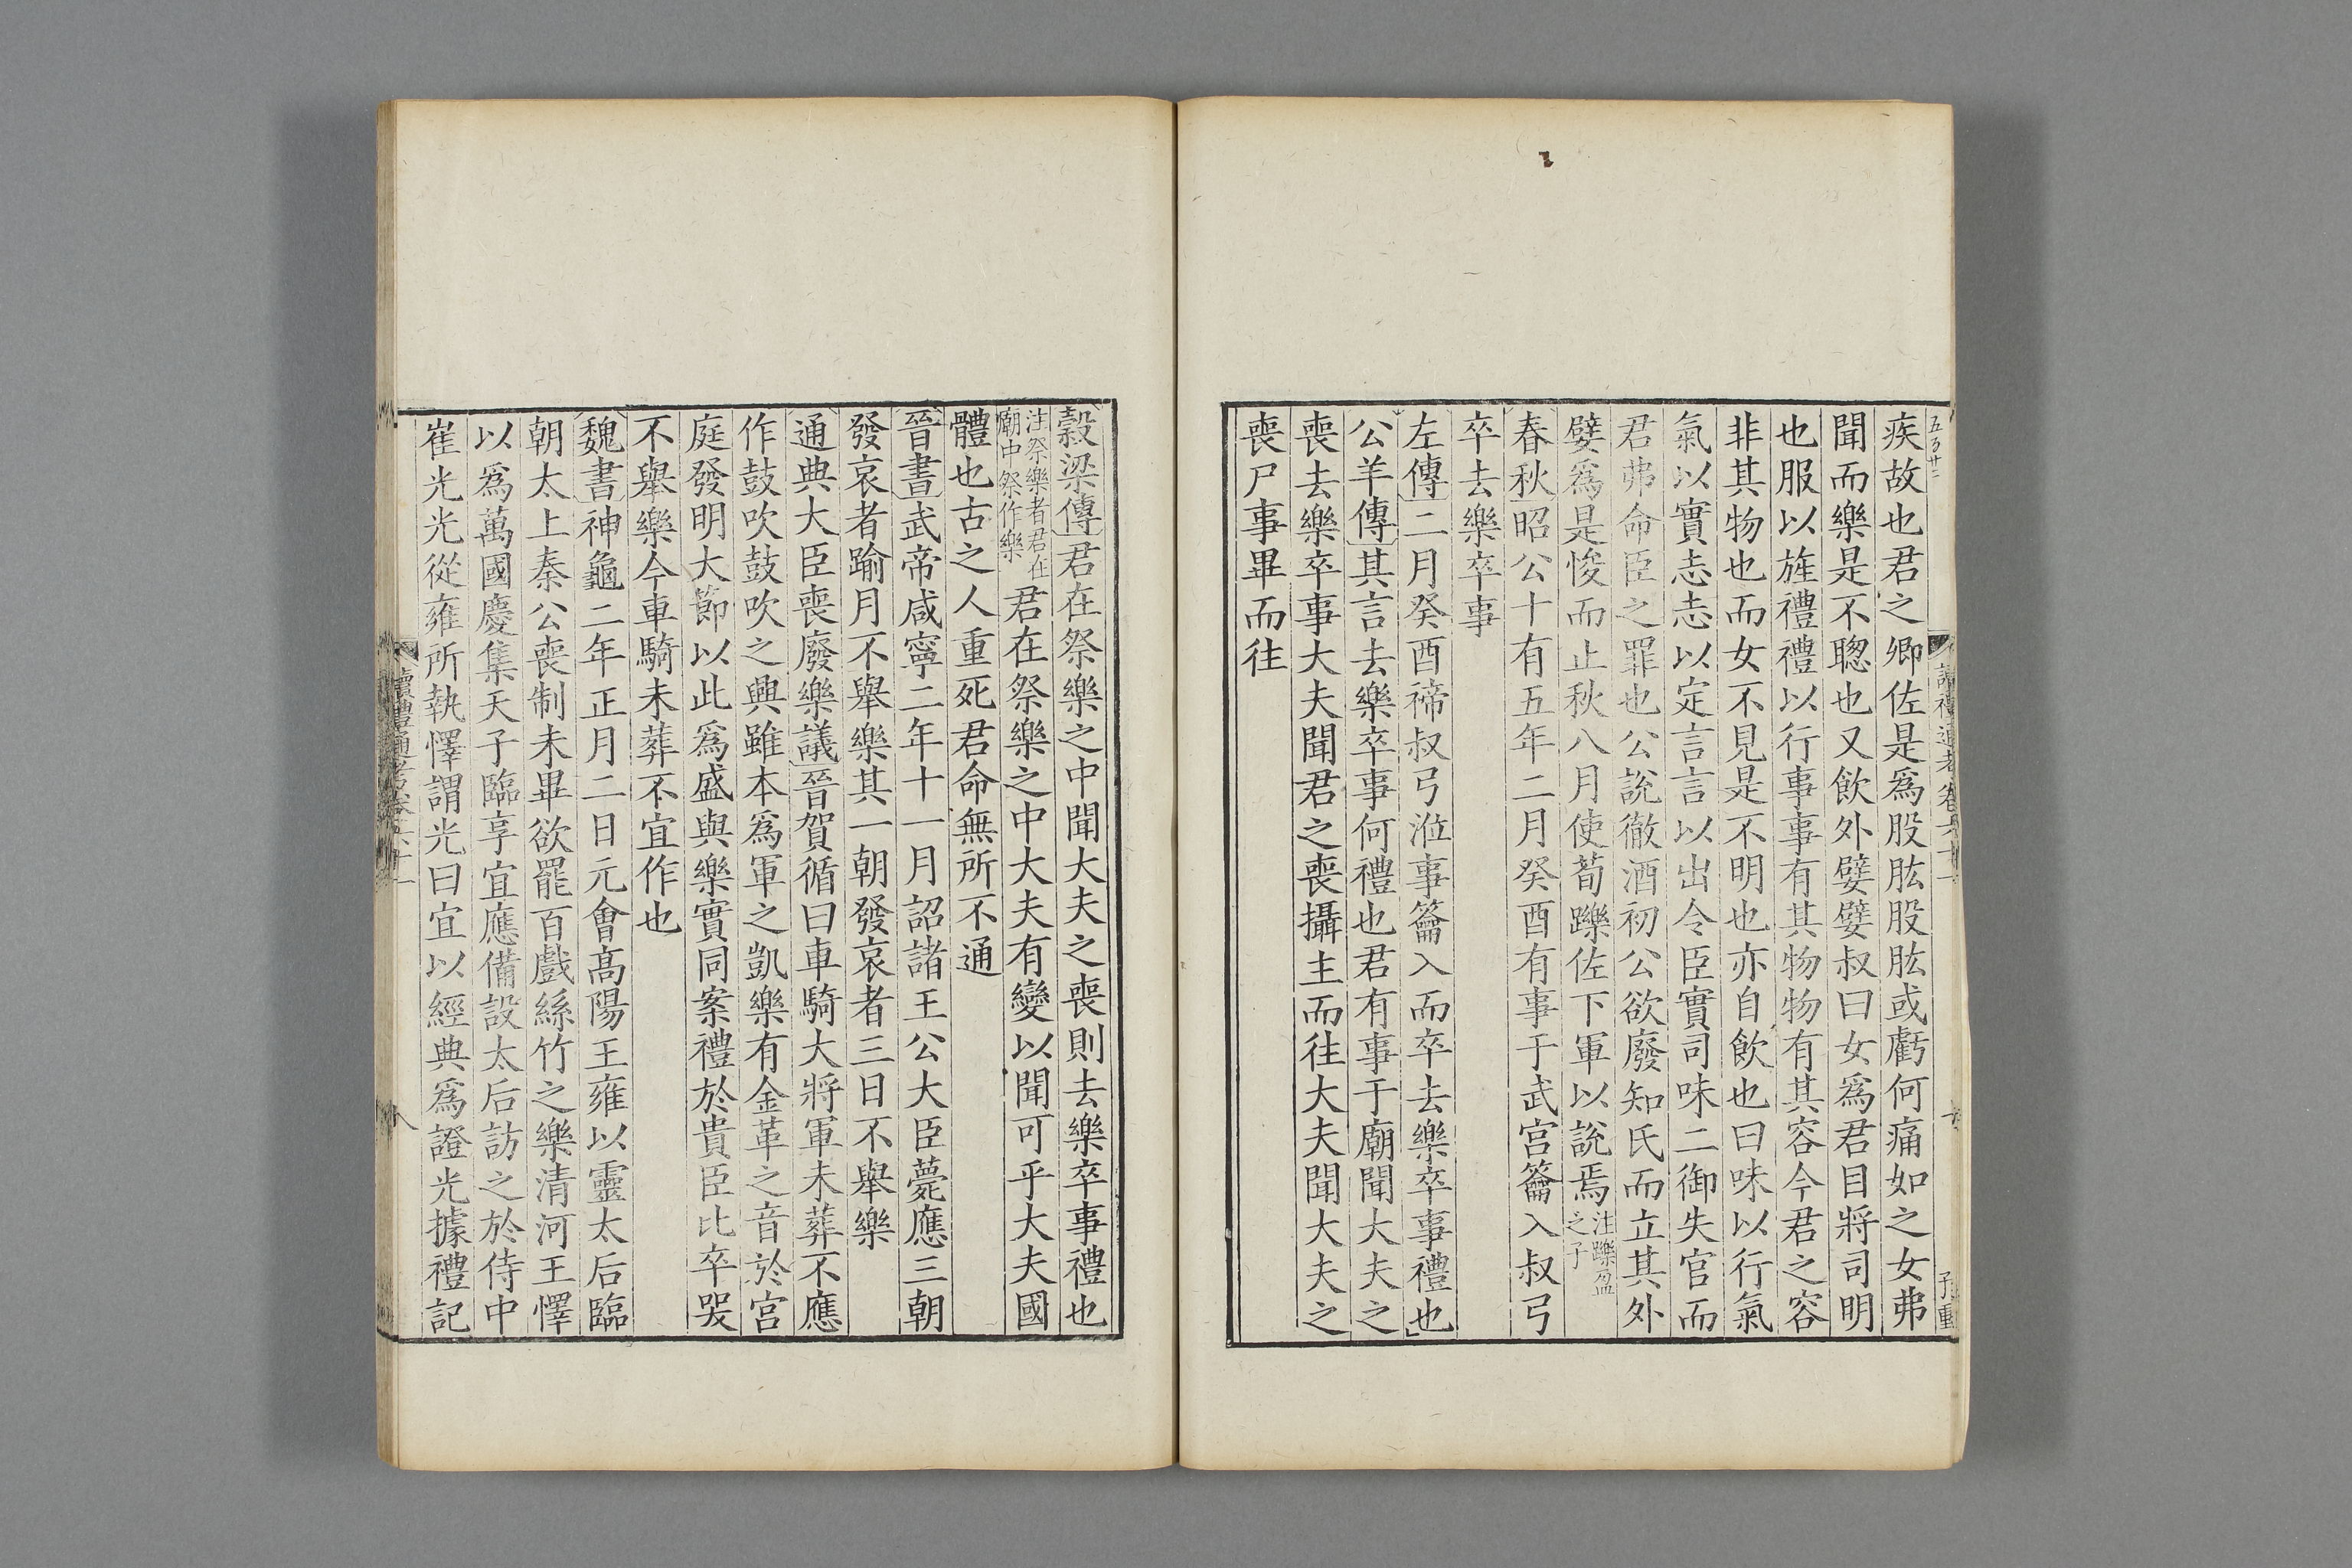 疾故也君之卿佐是爲股肱股肱或虧何痛如之女弗
聞而樂是不聰也又飲外嬖嬖叔曰女爲君目將司明
也服以旌禮禮以行事事有其物物有其容今君之容
非其物也而女不見是不明也亦自飲也曰味以行氣
氣以實志志以定言言以出令臣實司味二御失官而
君弗命臣之罪也公說徹酒初公欲廢知氏而立其外
嬖爲是悛而止秋八月使荀躒佐下軍以說焉注躒盈之子
春秋昭公十有五年二月癸酉有事于武宮籥入叔弓
卒去樂卒事
左傳二月癸酉禘叔弓涖事籥入而卒去樂卒事禮也
公羊傳其言去樂卒事何禮也君有事于廟聞大夫之
喪去樂卒事大夫聞君之喪攝主而往大夫聞大夫之
喪尸事畢而往
穀梁傳君在祭樂之中聞大夫之喪則去樂卒事禮也
注祭樂者君在廟中祭作樂君在祭樂之中大夫有變以聞可乎大夫國
體也古之人重死君命無所不通
晉書武帝咸寧二年十一月詔諸王公大臣薨應三朝
發哀者踰月不舉樂其一朝發哀者三日不舉樂
通典大臣喪廢樂議晉賀循曰車騎大將軍未葬不應
作鼓吹鼓吹之興雖本爲軍之凱樂有金革之音於宮
庭發明大節以此爲盛與樂實同案禮於貴臣比卒哭
不舉樂今車騎未葬不宜作也
魏書神龜二年正月二日元會高陽王雍以靈太后臨
朝太上秦公喪制未畢欲罷百戲絲竹之樂清河王懌
以爲萬國慶集天子臨享宜應備設太后訪之於侍中
崔光光從雍所執懌謂光曰宜以經典爲證光據禮記
讀禮通考卷六十一
八